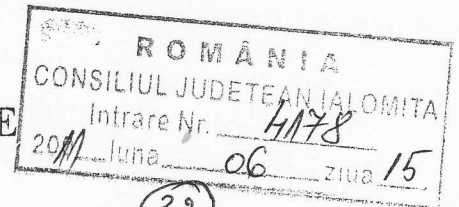 ROMÂNIA
CONSILIUL JUDETEAN IALOMITA
Intrare Nr. 4178
2011 luna 06 ziua 15
E
29